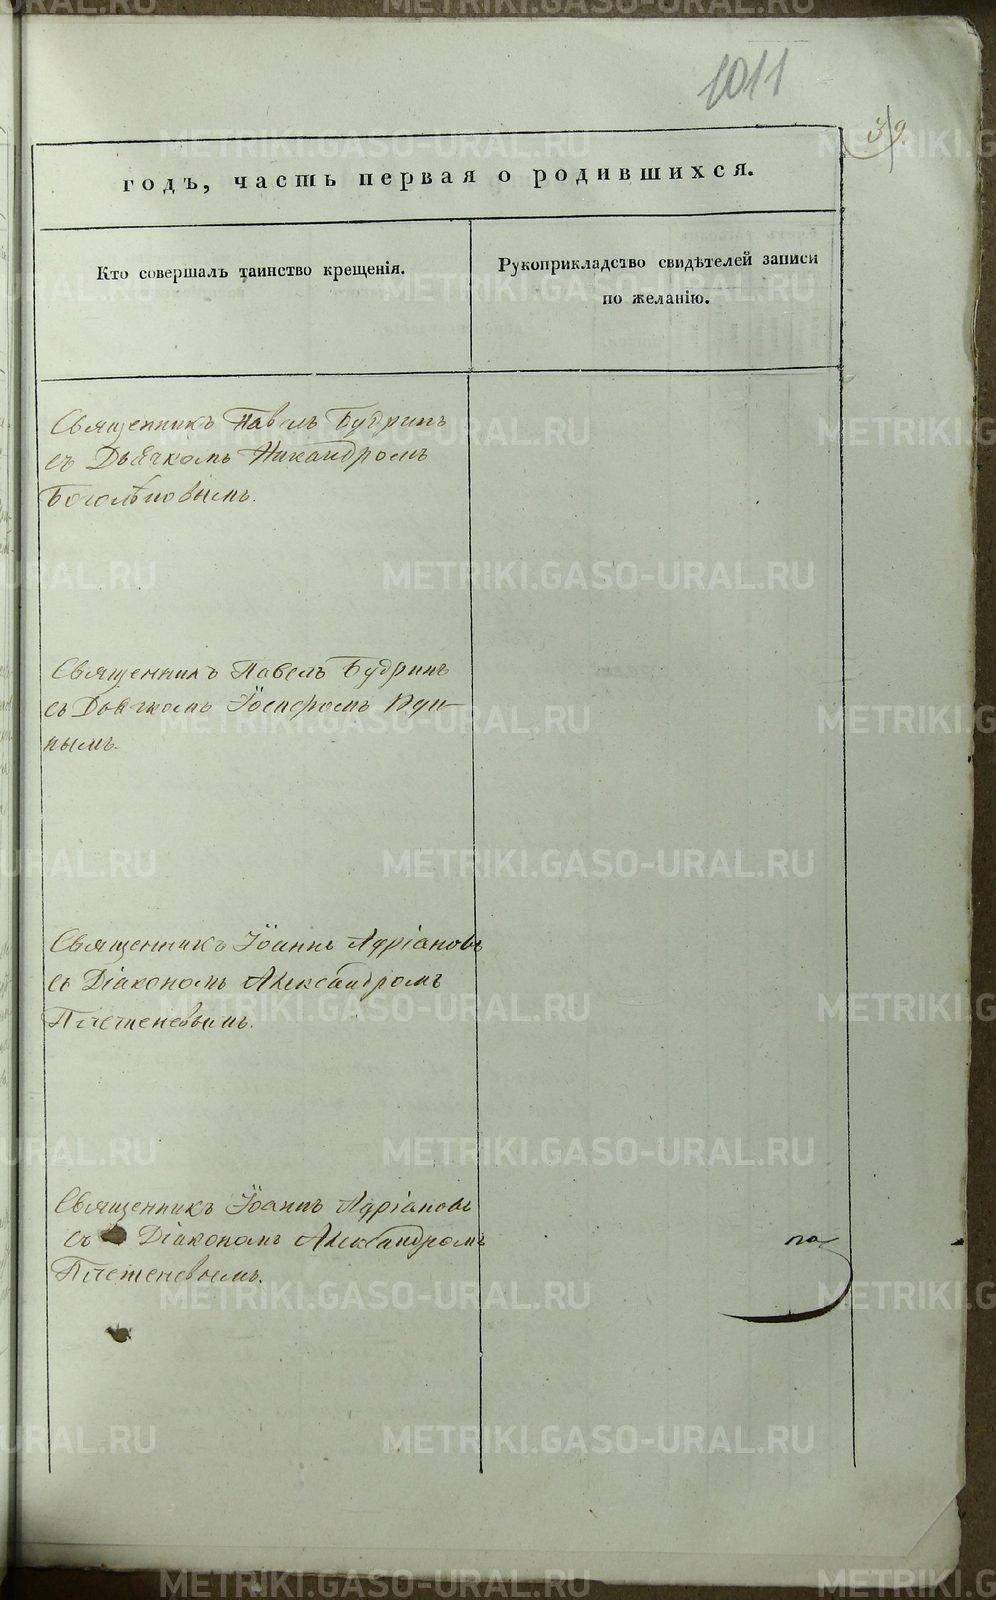 1011
39.
годъ, часть первая о родившихся.
Кто совершалъ таинство крещенія.
Рукоприкладство свидѣтелей записи
по желанію.
Священникъ Павелъ Будринъ
съ Дьячкомъ Никандромъ
Боголѣповымъ.
Священникъ Павелъ Будринъ
съ Дьячкомъ Іосифомъ
нымъ.
Священникъ Іоаннъ Адріановъ
съ Діакономъ Александромъ
Плетеневымъ.
Священникъ Іоаннъ Адріановъ
съ Діакономъ Александромъ
по
Плетеневымъ.
METRIKI.GASO-URAL.RU